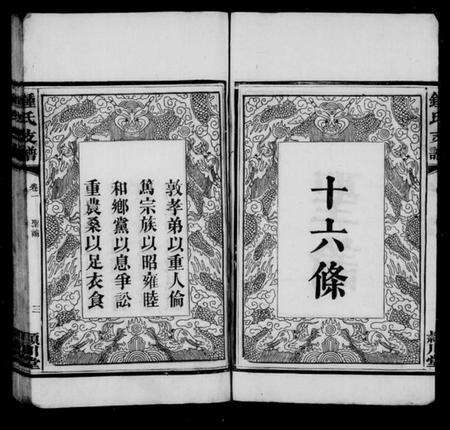 鍾氏支譜
十六條
敦孝弟以重人倫
篤宗族以昭雍睦
和鄉黨以息爭訟
重農桑以足衣食
鍾氏支譜
卷一
聖諭
三
潁川堂